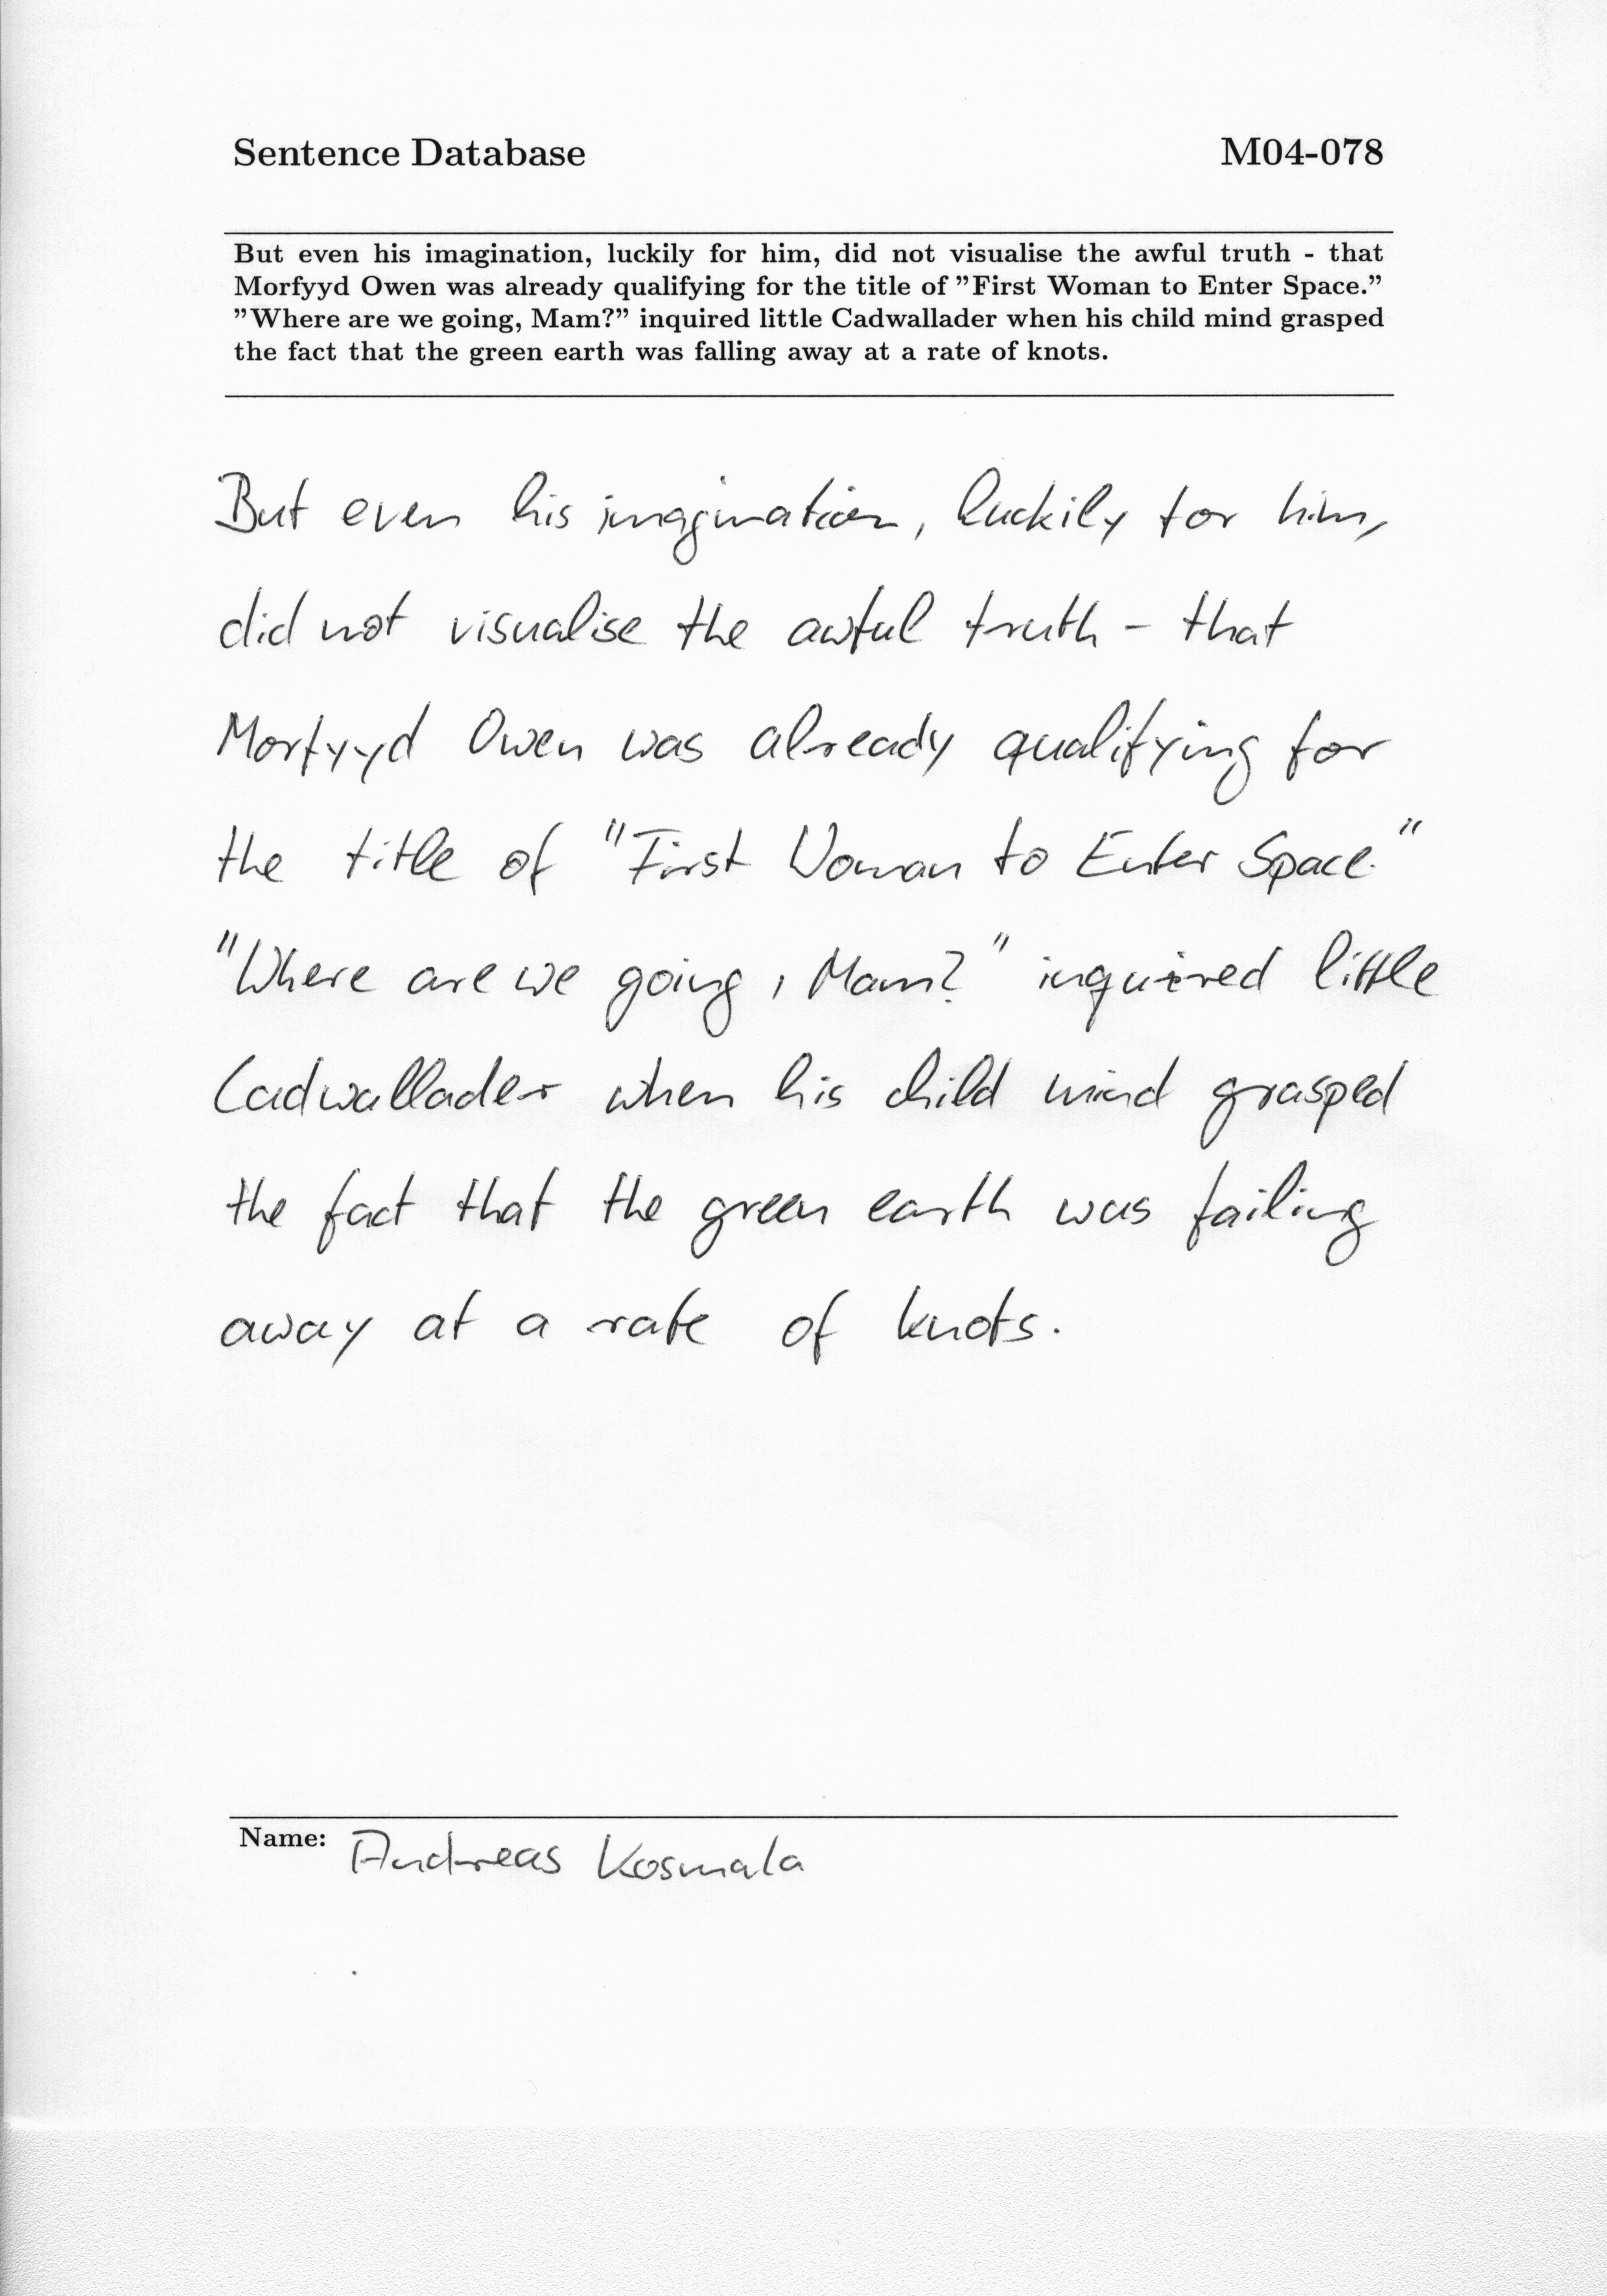 Sentence Database M04-078
But even his imagination, luckily for him, did not visualise the awful truth - that
Morfyyd Owen was already qualifying for the title of ”First Woman to Enter Space.”
”Where are we going, Mam?” inquired little Cadwallader when his child mind grasped
the fact that the green earth was falling away at a rate of knots.
But even his imagination, luckily for him,
did not visualise the awful truth - that
Morfyyd Owen was already qualifying for
the title of "First Woman to Enter Space."
"Where are we going, Mam?" inquired little
Cadwallader when his child mind grasped
the fact that the green earth was failing
away at a rate of knots.
Name: Andreas Kosmala